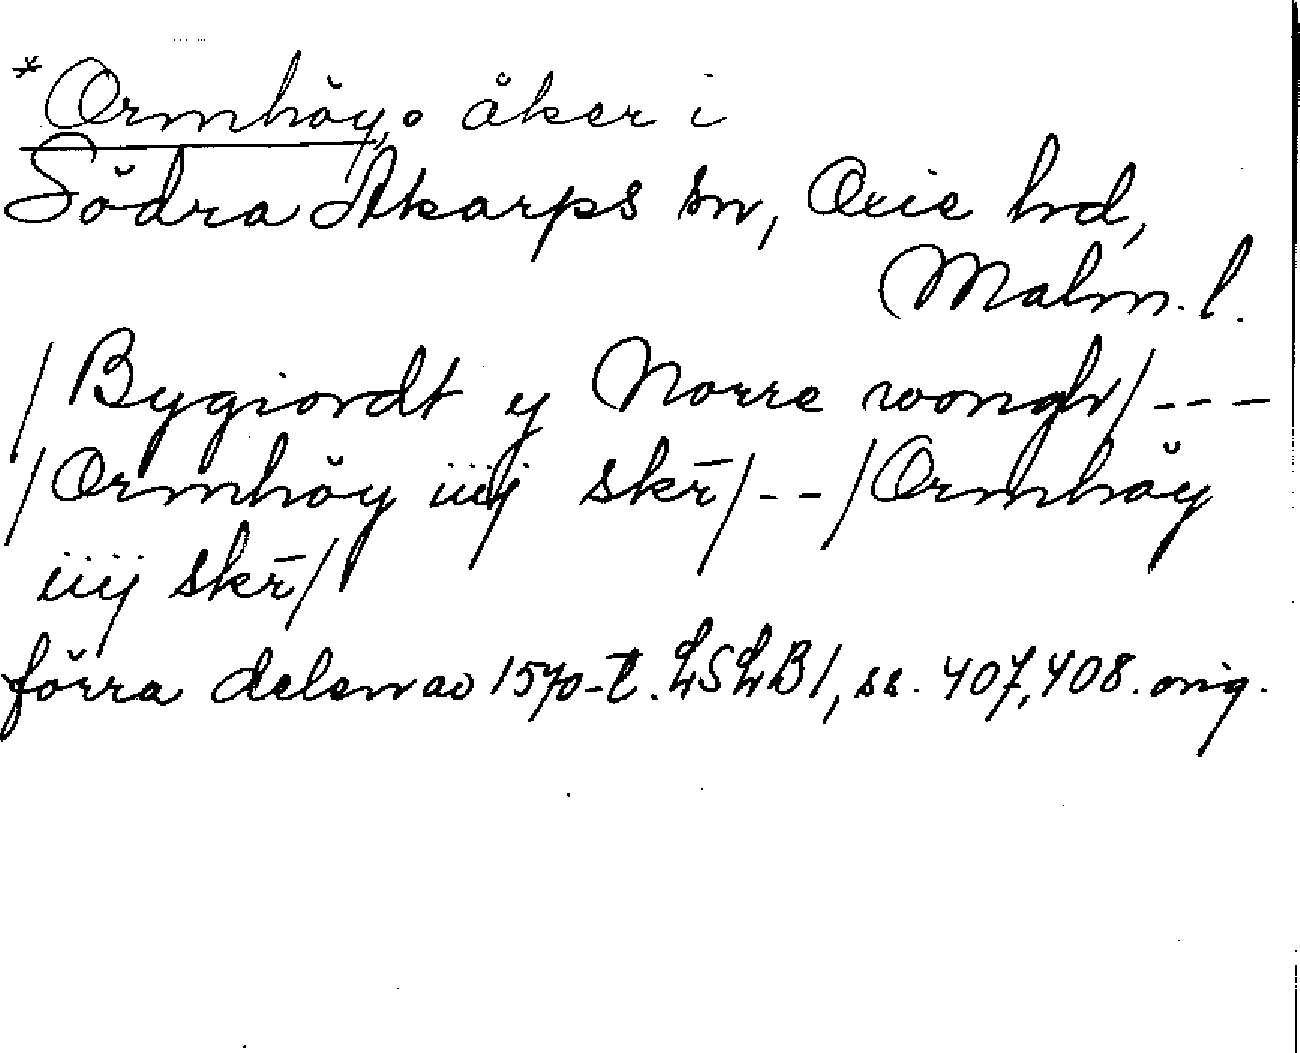 *Ormhöy, åker i
Södra Åkarps sn, Oxie hrd,
Malm. l.
/Bygiordt y Norre wongh/---
/Ormhöy iiij skr̄/--/Ormhöy
iiij skr̄/
förra delen av 1570-t. LSLB1, ss. 407,408. orig.